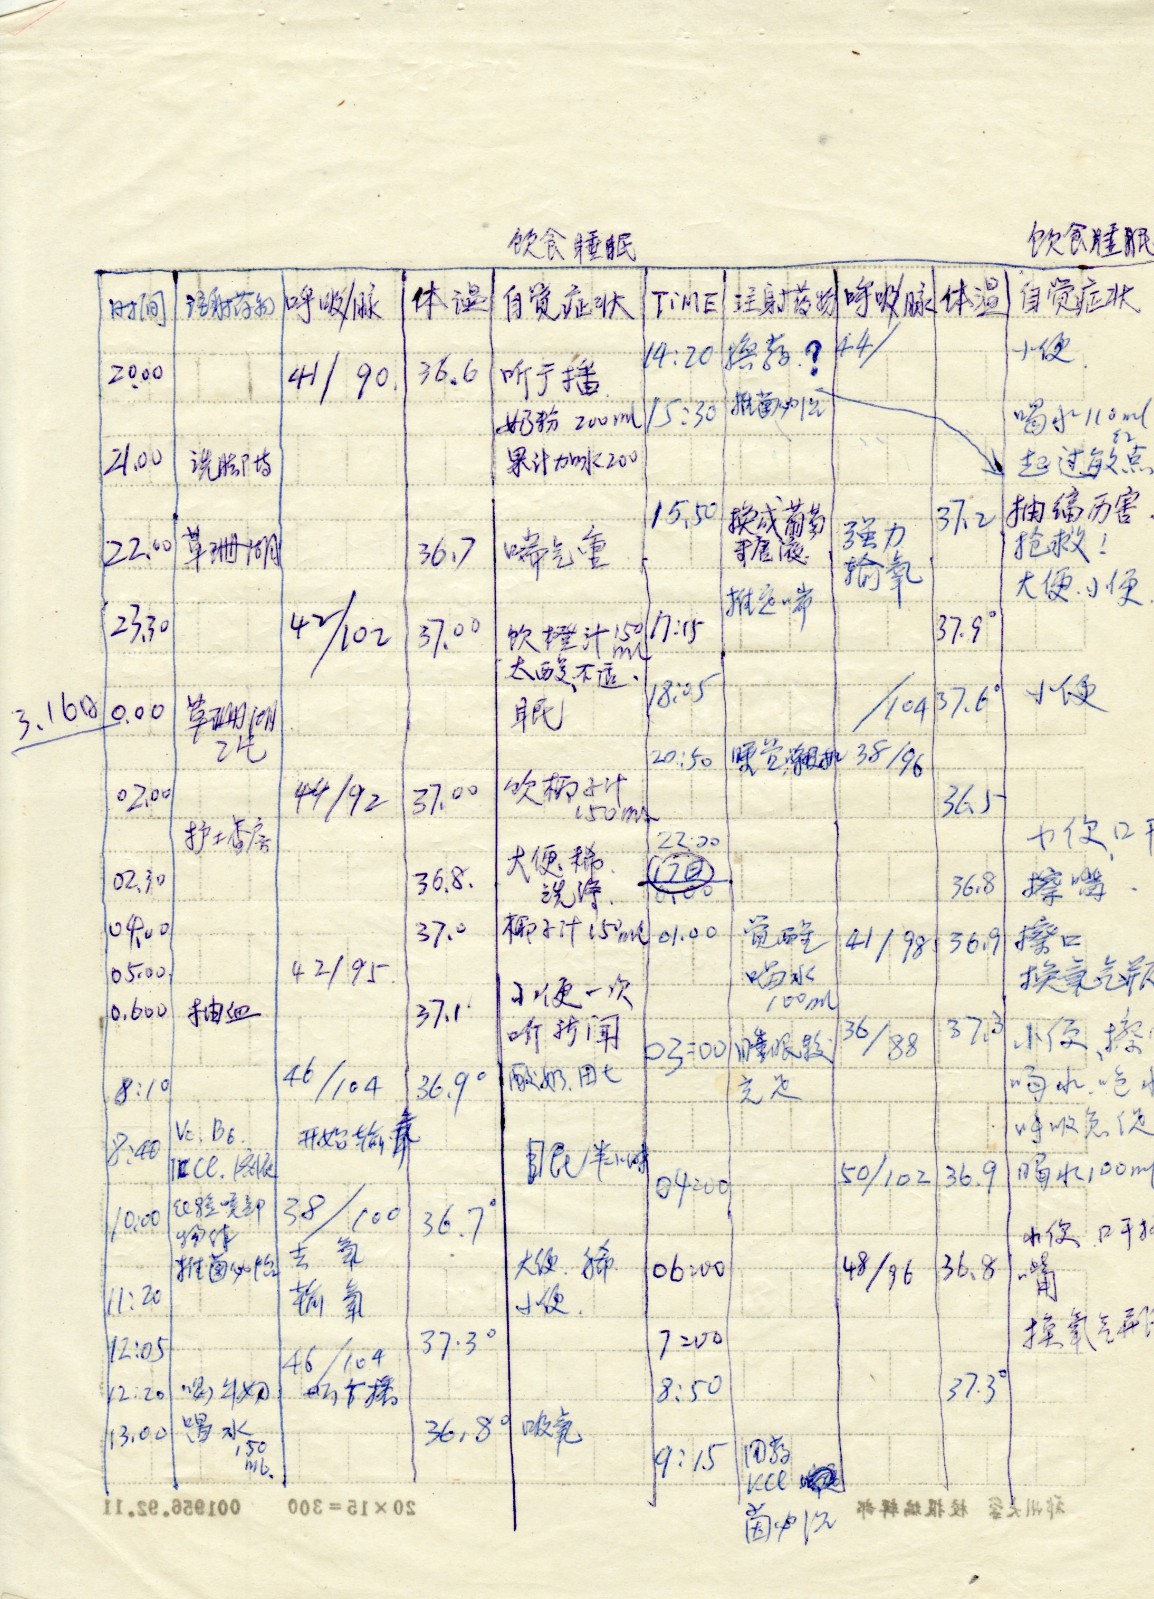 饮食睡眠
饮食睡眠
时间 注射药物 呼吸/脉 体温 自觉症状
20.00 41/90 36.6 听广播
奶粉 200ml
21.00 果汁加水200
22.00 草珊瑚 36.7 喘气重
23.30 42/102 37.00 饮橙汁150ml
太酸,不适、
3.16日 0.00 草珊瑚 眠
02.00 44/92 37.00 饮椰子汁
150ml
护士查房
02.30 36.8. 大便.稀.
洗净.
04.00 37.0 椰子汁150ml
05.00 42/95.
0.600 抽血 37.1 小便一次
听新闻
8:10 46/104 36.9° 酸奶.
8:40 Vc. B6. 开始输氧
KCl. 眠半小时
10:00 38/100 36.7°
去氧 大便.稀.
11:20 输氧 小便.
12:05 37.3°
46/104
12:20 喝牛奶 听广播
13.00 喝水 36.8° 吸氧
150
ml.
TiME 注射药物 呼吸/脉 体温 自觉症状
14:20 换药.? 44/ 小便.
15:30 喝水110ml
起过敏点
红
15.50 换成葡萄 37.2 抽搐厉害.
糖液. 强力 抢救!
输氧 大便.小便.
17:15 推 喘 37.9°
18:05 /104 37.6° 小便
20:50 38/96
36.5
22:00 小便,口干
17日
0:00 36.8 擦嘴.
01.00 觉醒 41/98 36.9 擦口
喝水 换氧气瓶
100ml
03:00 睡眠较 36/88 37.3 小便、擦
充足 喝水.吃
呼吸急促
04:00 50/102 36.9 喝水100ml
小便.口干擦
06:00 48/96 36.8 嘴
7:00 换氧气瓶
8:50 37.3°
9:15 用药
KCl
菌必治
郑州大学 校报编辑部
20×15=300
001956.92.11